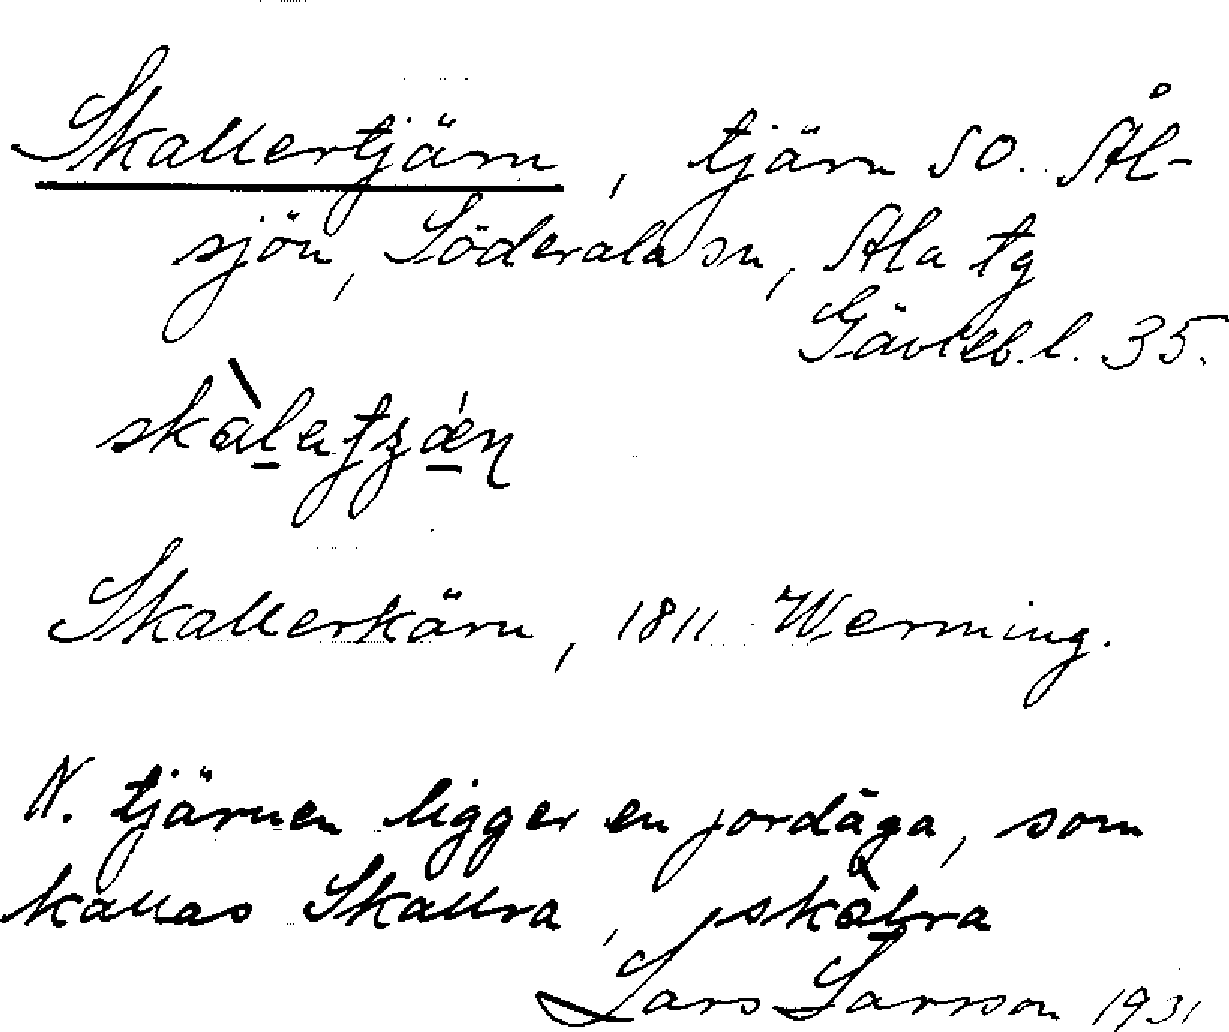 Skallertjärn, tjärn SO. Ål-
sjön, Söderala sn, Ala tg
Gävleb. l. 35.
Skallerkärn, 1811 Werming.
N. tjärnen ligger en jordäga, som
kallas Skallra, skàl̲ra
Lars Larsson 1931